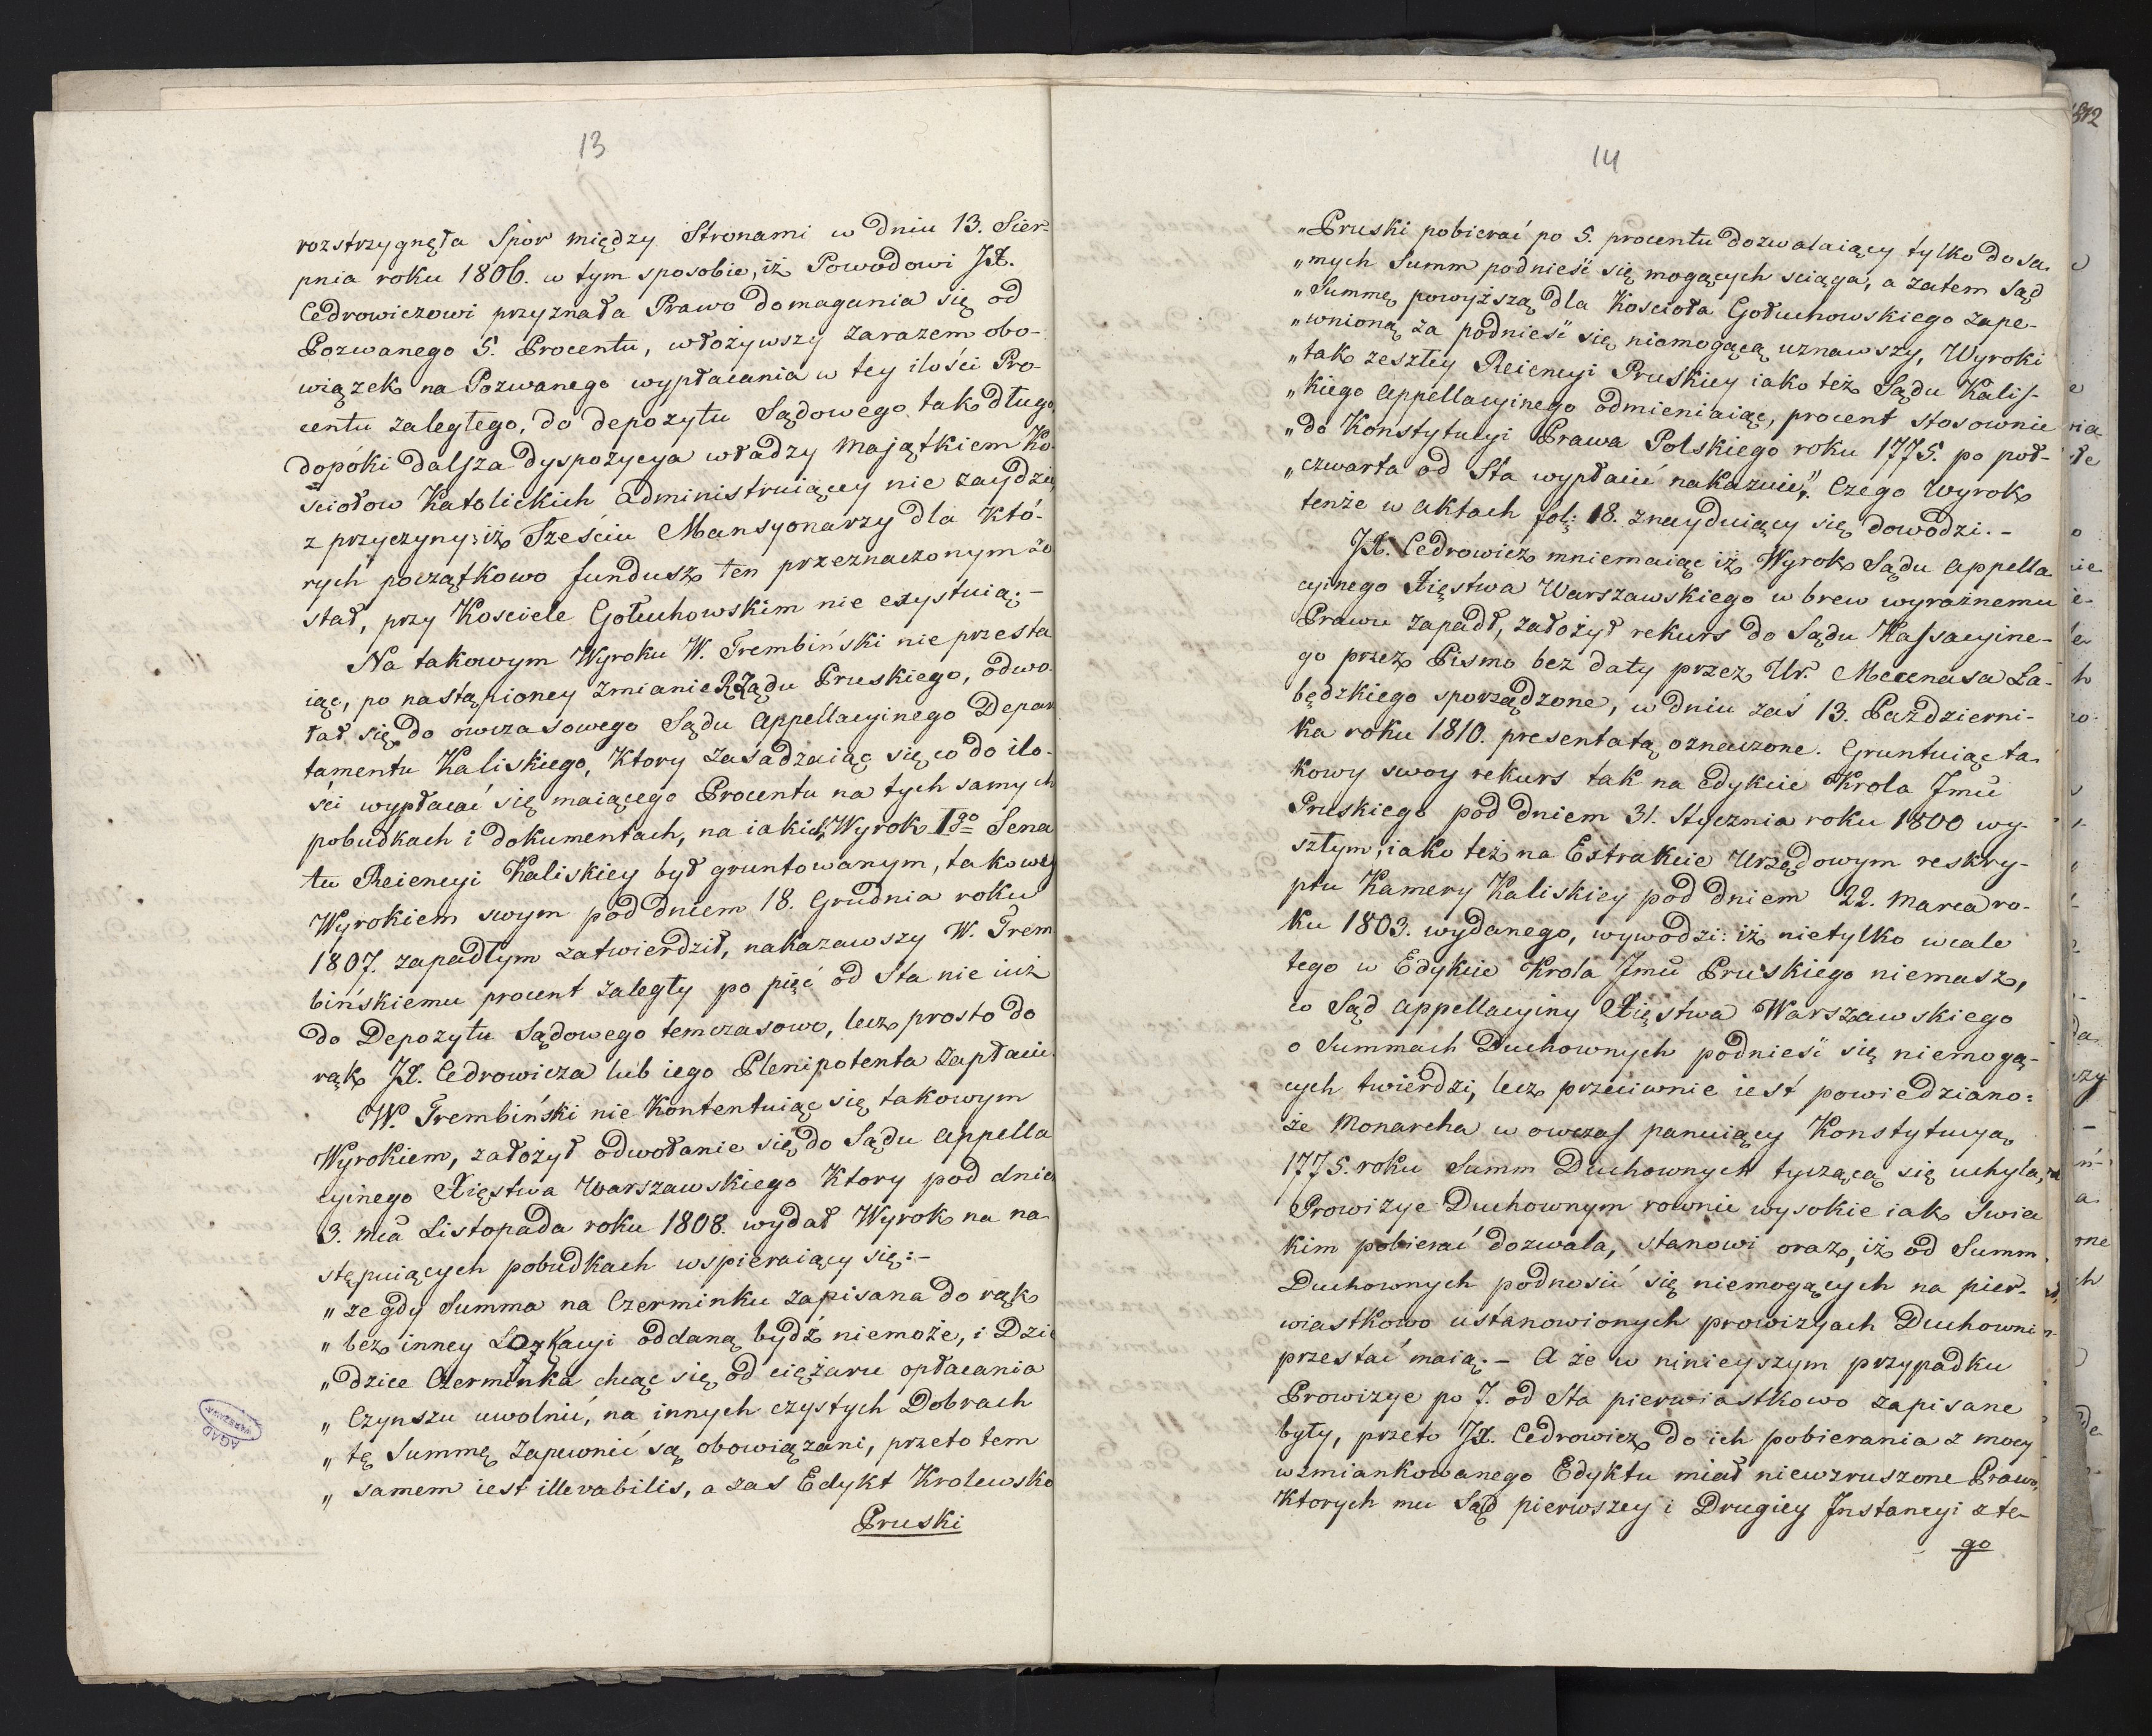 13
rozstrzygnęła Spor między Stronami w Dniu 13. Sier-
pnia roku 1806. w tym sposobie, iż Powodowi JX.
Cedrowiczowi przyznała Prawo domagania się od
Pozwanego 5. Procentu, włożywszy zarazem obo-
wiązek na Pozwanego wypłacania w tey ilości Pro-
centu zaległego, do depozytu Sądowego tak długo,
dopóki dalsza dyspozycya władzy majątkiem Ko-
sciołow Katolickich administruiącey nie zaydzie,
z przyczyny: iż Sześciu Mansyonarzy dla Któ-
rych początkowo fundusz ten przeznaczonym zo
stał, przy Kosciele Gołuchowskim nie exystuią. -
Na takowym Wyroku W. Trembiński nie przesta
iąc, po nastąpioney zmianie Rządu Pruskiego, odwo-
łał się do owczasowego Sądu Appellacyinego Depar
tamentu Kaliskiego, Ktory zasadzaiąc się co do ilo-
ści wypłacać się maiącego Procentu na tych samych
pobudkach i dokumentach, na iakich Wyrok 1go Sena
tu Reiencyi Kaliskiey był gruntowanym, takowy
Wyrokiem swym pod dniem 18. Grudnia roku
1807. zapadłym zatwierdził, nakazawszy W. Trem
bińskiemu procent zaległy po pięć od Sta nie iuż
do Depozytu Sądowego temczasowo, lecz prosto do
rąk JX. Cedrowicza lub iego Plenipotenta zapłacić.
W. Trembiński nie Kontentuiąc się takowym
Wyrokiem, założył odwołanie się do Sądu Appella
cyinego Xięstwa Warszawskiego Ktory pod dnie
3. mca Listopada roku 1808. wydał Wyrok na na
stępuiących pobudkach wspieraiący się: -
„ że gdy Summa na Czerminku zapisana do rąk
„ bez inney Lokacyi oddaną bydź niemoże, i Dzie
„ dzice Czerminka chcąc się od ciężaru opłacania
„ Czynszu uwolnić, na innych czystych Dobrach
„ tę Summę zapewnić są obowiązani, przeto tem
„ samem iest illevabilis, a zas Edykt Krolewsko
Pruski
AGAD
WARSZAWA
14
„Pruski pobierać po 5. procentu dozwalaiący tylko do sa-
„mych Summ podnieść się mogących sciąga, a zatem Sąd
„Summę powyższą dla Kościoła Gołuchowskiego zape-
„wnioną za podnieść się niemogącą uznawszy, Wyroki
„tak zeszłey Reiencyi Pruskiey iako też Sądu Kalis-
„kiego Appellacyinego odmieniaiąc, procent stosownie
„do Konstytucyi Prawa Polskiego roku 1775. po poł-
„czwarta od Sta wypłacić nakazuie". Czego Wyrok
tenże w Aktach fol: 18. znayduiący się dowodzi. -
JX. Cedrowicz mniemaiąc iż Wyrok Sądu Appella
cyinego Xięstwa Warszawskiego w brew wyraźnemu
Prawu zapadł, założył rekurs do Sądu Kassacyine-
go przez Pismo bez daty przez Ur. Mecenasa La-
będzkiego sporządzone, w dniu zaś 13. Październi-
ka roku 1810. presentatą oznaczone. Gruntuiąc ta-
kowy swoy rekurs tak na Edykcie Krola Jmci
Pruskiego pod dniem 31. Stycznia roku 1800 wy-
szłym, iako też na Extrakcie Urzędowym reskry-
ptu Kamery Kaliskiey pod dniem 22. marca ro-
ku 1803. wydanego, wywodzi: iż nietylko wcale
tego w Edykcie Krola Jmci Pruskiego niemasz,
co Sąd Appellacyiny Xięstwa Warszawskiego
o Summach Duchownych podnieść się niemogą-
cych twierdzi, lecz przeciwnie iest powiedziano:
że Monarcha w owczas panuiący Konstytucyą
1775. roku Summ Duchownych tyczącą się uchyla,
Prowizye Duchownym rownie wysokie iak Swiec
kim pobierać dozwala, stanowi oraz, iż od Summ
Duchownych podnosić się niemogących na pier-
wiastkowo ustanowionych prowizyach Duchowni
przestać maią. - A że w ninieyszym przypadku
Prowizye po 7. od Sta pierwiastkowo zapisane
były, przeto JX. Cedrowicz do ich pobierania z mocy
wzmiankowanego Edyktu miał niewzruszone Prawo,
Ktorych mu Sąd pierwszey i Drugiey Instancyi z te-
go